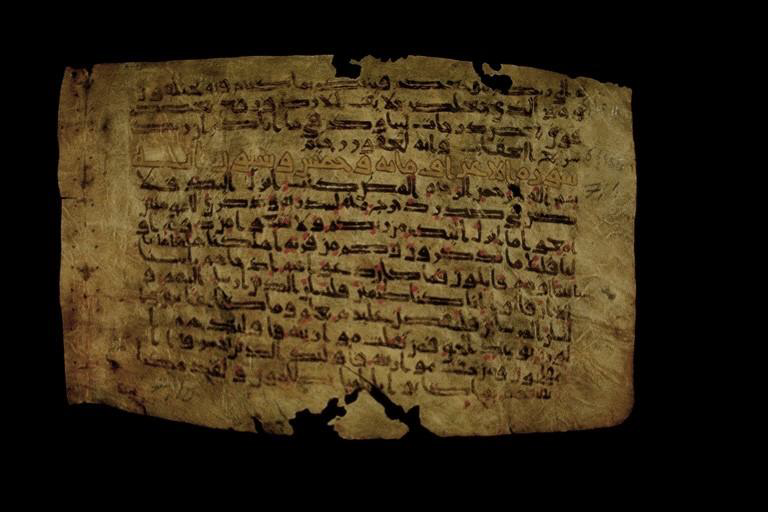 الى ربكم مرجعكم فينبئكم بما كنتم فيه تختلفون
وهو الذي جعلكم خلئف الارض ورفع بعضكم
فوق بعض درجات ليبلوكم في ما اتاكم ان ربك
سريع العقاب وانه لغفور رحيم
سورة الاعراف مائة وخمس
بسم الله الرحمن الرحيم المص كتب انزل اليك فلا
يكن في صدرك حرج منه لتنذر به وذكرى للمومنين
اتبعوا ما انزل اليكم من ربكم ولا تتبعوا من دونه او
ليا قليلا ما تذكرون وكم من قرية اهلكنها فجاها
باسنا بيتا او هم قايلون فما كان دعويهم اذ جاهم باسنا
الا ان قالوا انا كنا ظلمين فلنسلن الذين ارسل اليهم و
لنسلن المرسلين فلنقصن عليهم بعلم وما كنا غايبين وا
لوزن يوميذ الحق فمن ثقلت موازينه فاوليك هم ا
لمفلحون ومن خفت موازينه فاوليك الذين خسروا ا
نفسهم بما كانوا بايتنا يظلمون ولقد مكنا